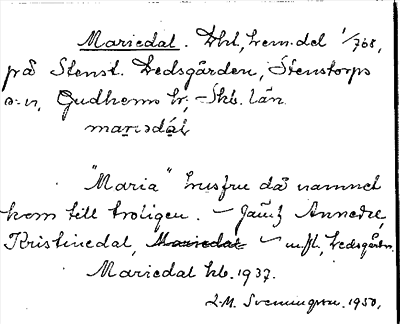 Mariedal. Lht, hem.del 1/768,
på Stenst. Ledsgården, Stenstorps
s:n, Gudhems hr, Skb. län.
"Maria" husfru då namnet
kom till troligen. – Jämf Annedal,
Kristinedal, Mariedal – m.fl., Ledsgårdn.
Mariedal hb. 1937.
L.M. Svenungsson. 1950.